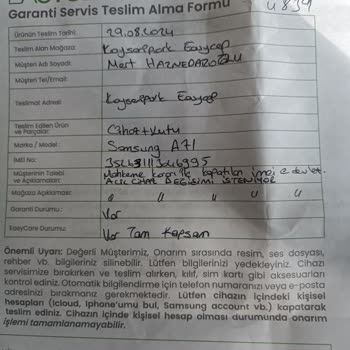 Garanti Servis Teslim Alma Formu
4839
Ürünün Teslim Tarihi: 29.08.2024
Teslim Alan Mağaza: Kayseripark Easycep
Müşteri Adı Soyadı: Mert HAZNEDAROĞLU
Müşteri Tel/Email:
Teslimat Adresi: Kayseripark Easycep
Teslim Edilen Ürün ve Parçalar: Cihaz+Kutu
Marka / Model: Samsung A71
IMEI No:
Müşterinin Talebi ve Açıklamaları: Mahkeme kararı ile kapatılan imei e devlet.
ACİL CİHAZ DEĞİŞİMİ İSTENİYOR
Mağaza Açıklaması: " " " " "
Garanti Durumu: Var
EasyCare Durumu: Var Tam Kapsam
Önemli Uyarı: Değerli Müşterimiz, Onarım sırasında resim, ses dosyası,
rehber vb. bilgileriniz silinebilir. Lütfen bilgilerinizi yedekleyiniz. Cihazı
servisimize bırakırken ve teslim alırken, kılıf, sim kartı gibi aksesuarları
kontrol ediniz. Otomatik bilgilendirme için telefon numaranızı veya e-posta
adresinizi bırakmanız gerekmektedir. Lütfen cihazın içindeki kişisel
hesapları (Icloud, Iphone'umu bul, Samsung account vb.) kapatarak
teslim ediniz. Cihazın içinde kişisel hesap olması durumunda onarım
işlemi tamamlanamayabilir.